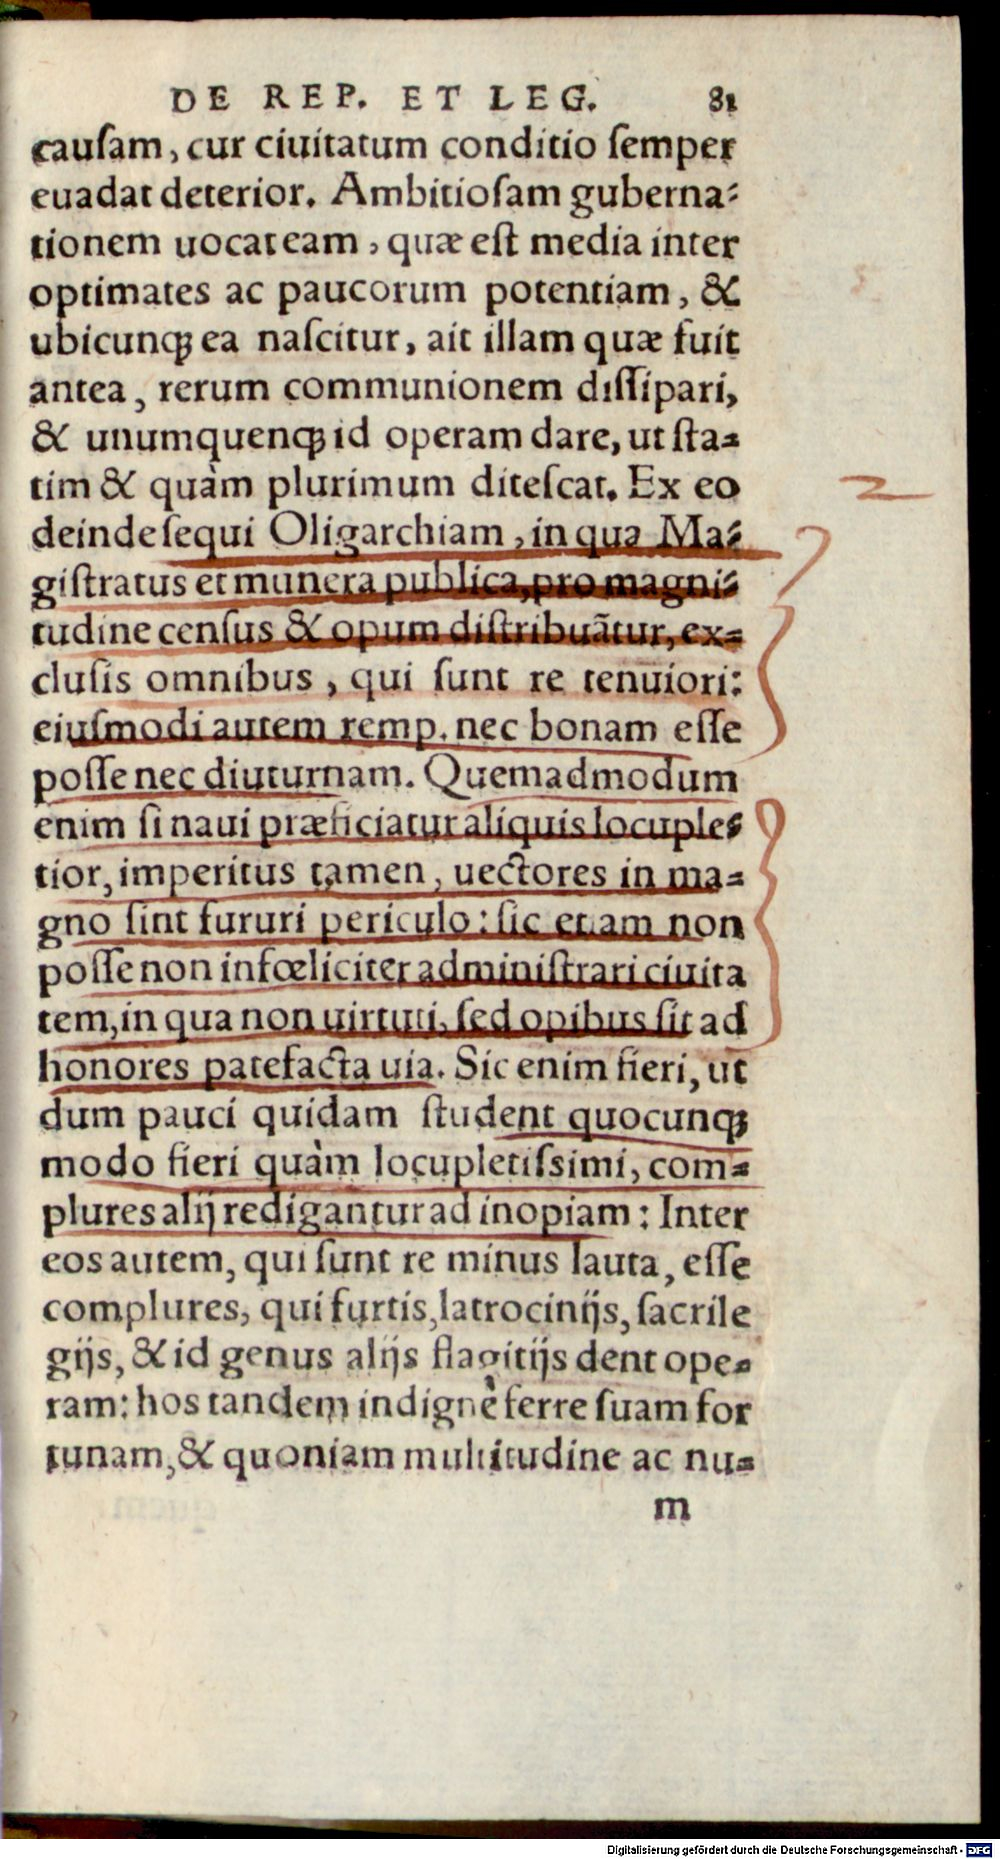 DE REP. ET LEG. 81
cauſam, cur ciuitatum conditio ſemper
euadat deterior. Ambitioſam guberna⸗
tionem uocat eam, quæ eſt media inter
optimates ac paucorum potentiam, &
ubicunqꝫ ea naſcitur, ait illam quæ fuit
antea, rerum communionem diſſipari,
& unumquenqꝫ id operam dare, ut ſta⸗
tim & quàm plurimum diteſcat. Ex eo
deinde ſequi Oligarchiam, in qua Ma⸗
giſtratus et munera publica, pro magni⸗
tudine cenſus & opum diſtribuãtur, ex⸗
cluſis omnibus, qui ſunt re tenuiori:
eiuſmodi autem remp. nec bonam eſſe
poſſe nec diuturnam. Quemadmodum
enim ſi naui præficiatur aliquis locuple⸗
tior, imperitus tamen, uectores in ma⸗
gno ſint fururi periculo: ſic etiam non
poſſe non infœliciter adminiſtrari ciuita
tem, in qua non uirtuti, ſed opibus ſit ad
honores patefacta uia. Sic enim fieri, ut
dum pauci quidam ſtudent quocunqꝫ
modo fieri quàm locupletiſsimi, com⸗
plures alij redigantur ad inopiam: Inter
eos autem, qui ſunt re minus lauta, eſſe
complures, qui furtis, latrocinijs, ſacrile
gijs, & id genus alijs flagitijs dent ope⸗
ram: hos tandem indignè ferre ſuam for
tunam, & quoniam multitudine ac nu⸗
m
Digitalisierung gefördert durch die Deutsche Forschungsgemeinschaft - DFG